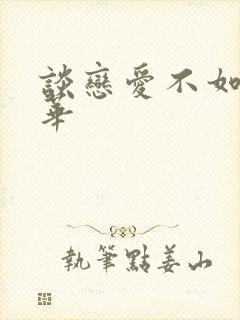 談戀愛不如
華
執筆點姜山